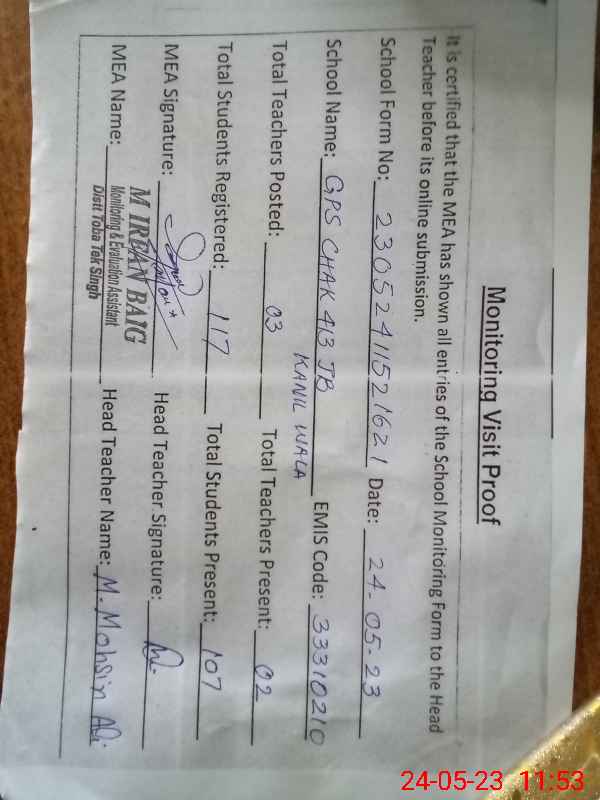 Monitoring Visit Proof
It is certified that the MEA has shown all entries of the School Monitoring Form to the Head
Teacher before its online submission.
School Form No: 23052411521621 Date: 24-05-23
School Name: GPS CHAK 413 JB EMIS Code: 33310210
KANIL WALA
Total Teachers Posted: 03 Total Teachers Present: 02
Total Students Registered: 117 Total Students Present: 107
MEA Signature: Head Teacher Signature:
MEA Name: M IRFAN BAIG Head Teacher Name: M. Mohsin Ali
Monitoring & Evaluation Assistant
Distt Toba Tek Singh
24-05-23 11:53